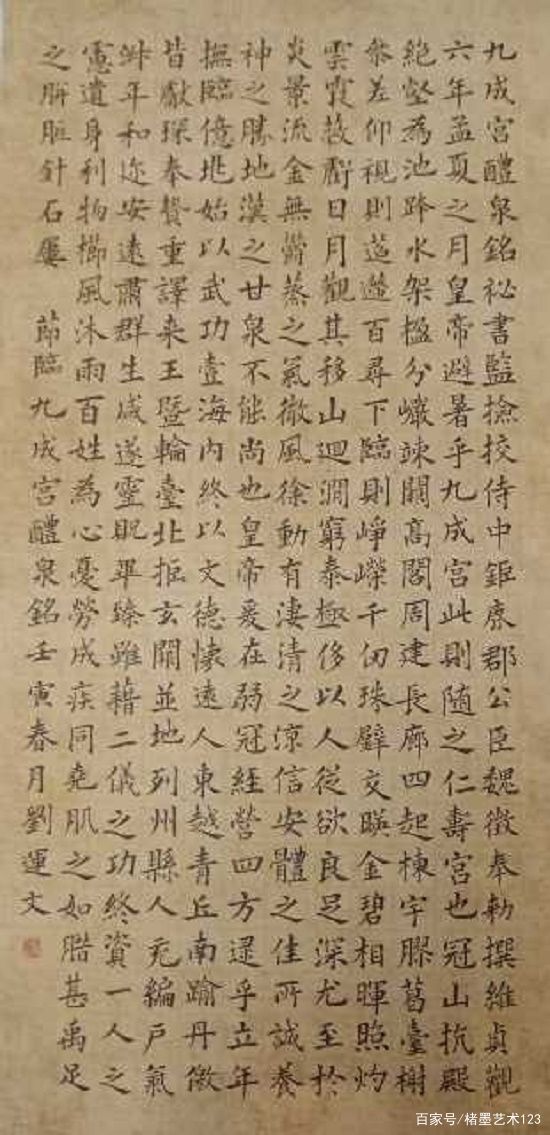 九成宮醴泉銘祕書監撿挍侍中鉅鹿郡公臣魏徵奉勅撰維貞觀
六年孟夏之月皇帝避暑乎九成宮此則隨之仁壽宮也冠山抗殿
絕壑為池跨水架楹分巗竦闕高閣周建長廊四起棟宇膠葛臺榭
叅差仰視則迢遰百尋下臨則崢嶸千仞珠璧交暎金碧相暉照灼
雲霞蔽虧日月觀其移山迴澗窮泰極侈以人從欲良足深尤至於
炎景流金無欝蒸之氣微風徐動有凄清之涼信安體之佳所誠養
神之勝地漢之甘泉不能尚也皇帝爰在弱冠經營四方逮乎立年
撫臨億兆始以武功壹海內終以文德懷遠人東越青丘南踰丹徼
皆獻琛奉贄重譯来王暨輪臺北拒玄闕並地列州縣人充編戶氣
淑年和迩安遠肅群生咸遂靈貺畢臻雖藉二儀之功終資一人之
慮遺身利物櫛風沐雨百姓為心憂勞成疾同堯肌之如腊甚禹足
之胼胝針石屢 節臨九成宮醴泉銘壬寅春月劉運文
百家号/楮墨艺术123